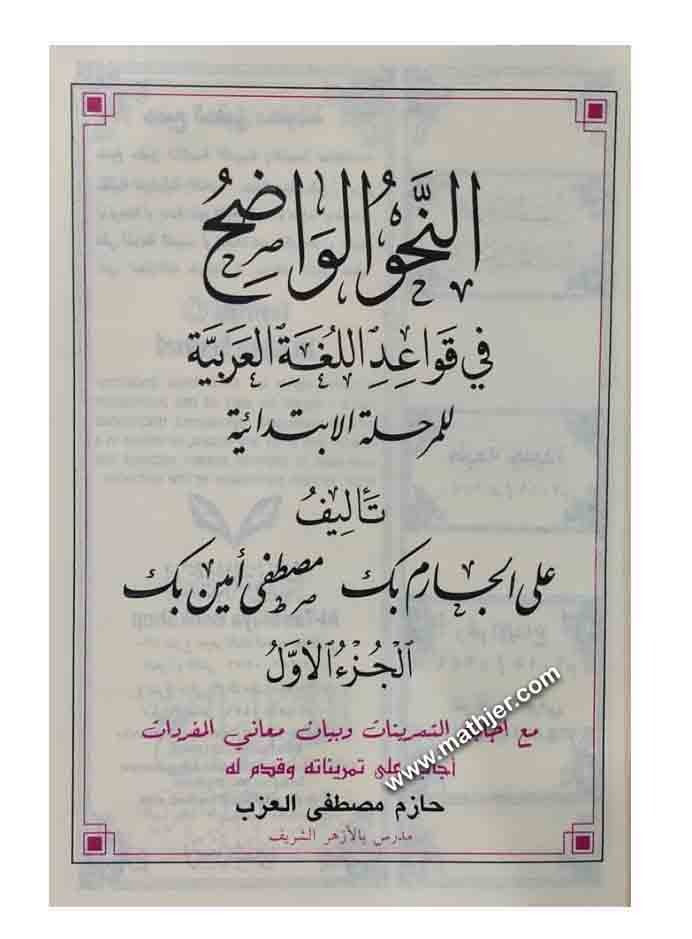 النَّحْوُ الوَاضِحُ
في قَوَاعِدِ اللُّغَةِ العَرَبِيَّة
للمرحلة الابتدائية
تَأْلِيفُ
على الجارم بك مصطفى أمين بك
الْجُزْءُ الأَوَّلُ
مع اجابة التمرينات وبيان معاني المفردات
أجاب على تمريناته وقدم له
حازم مصطفى العزب
مدرس بالأزهر الشريف
www.mathjer.com